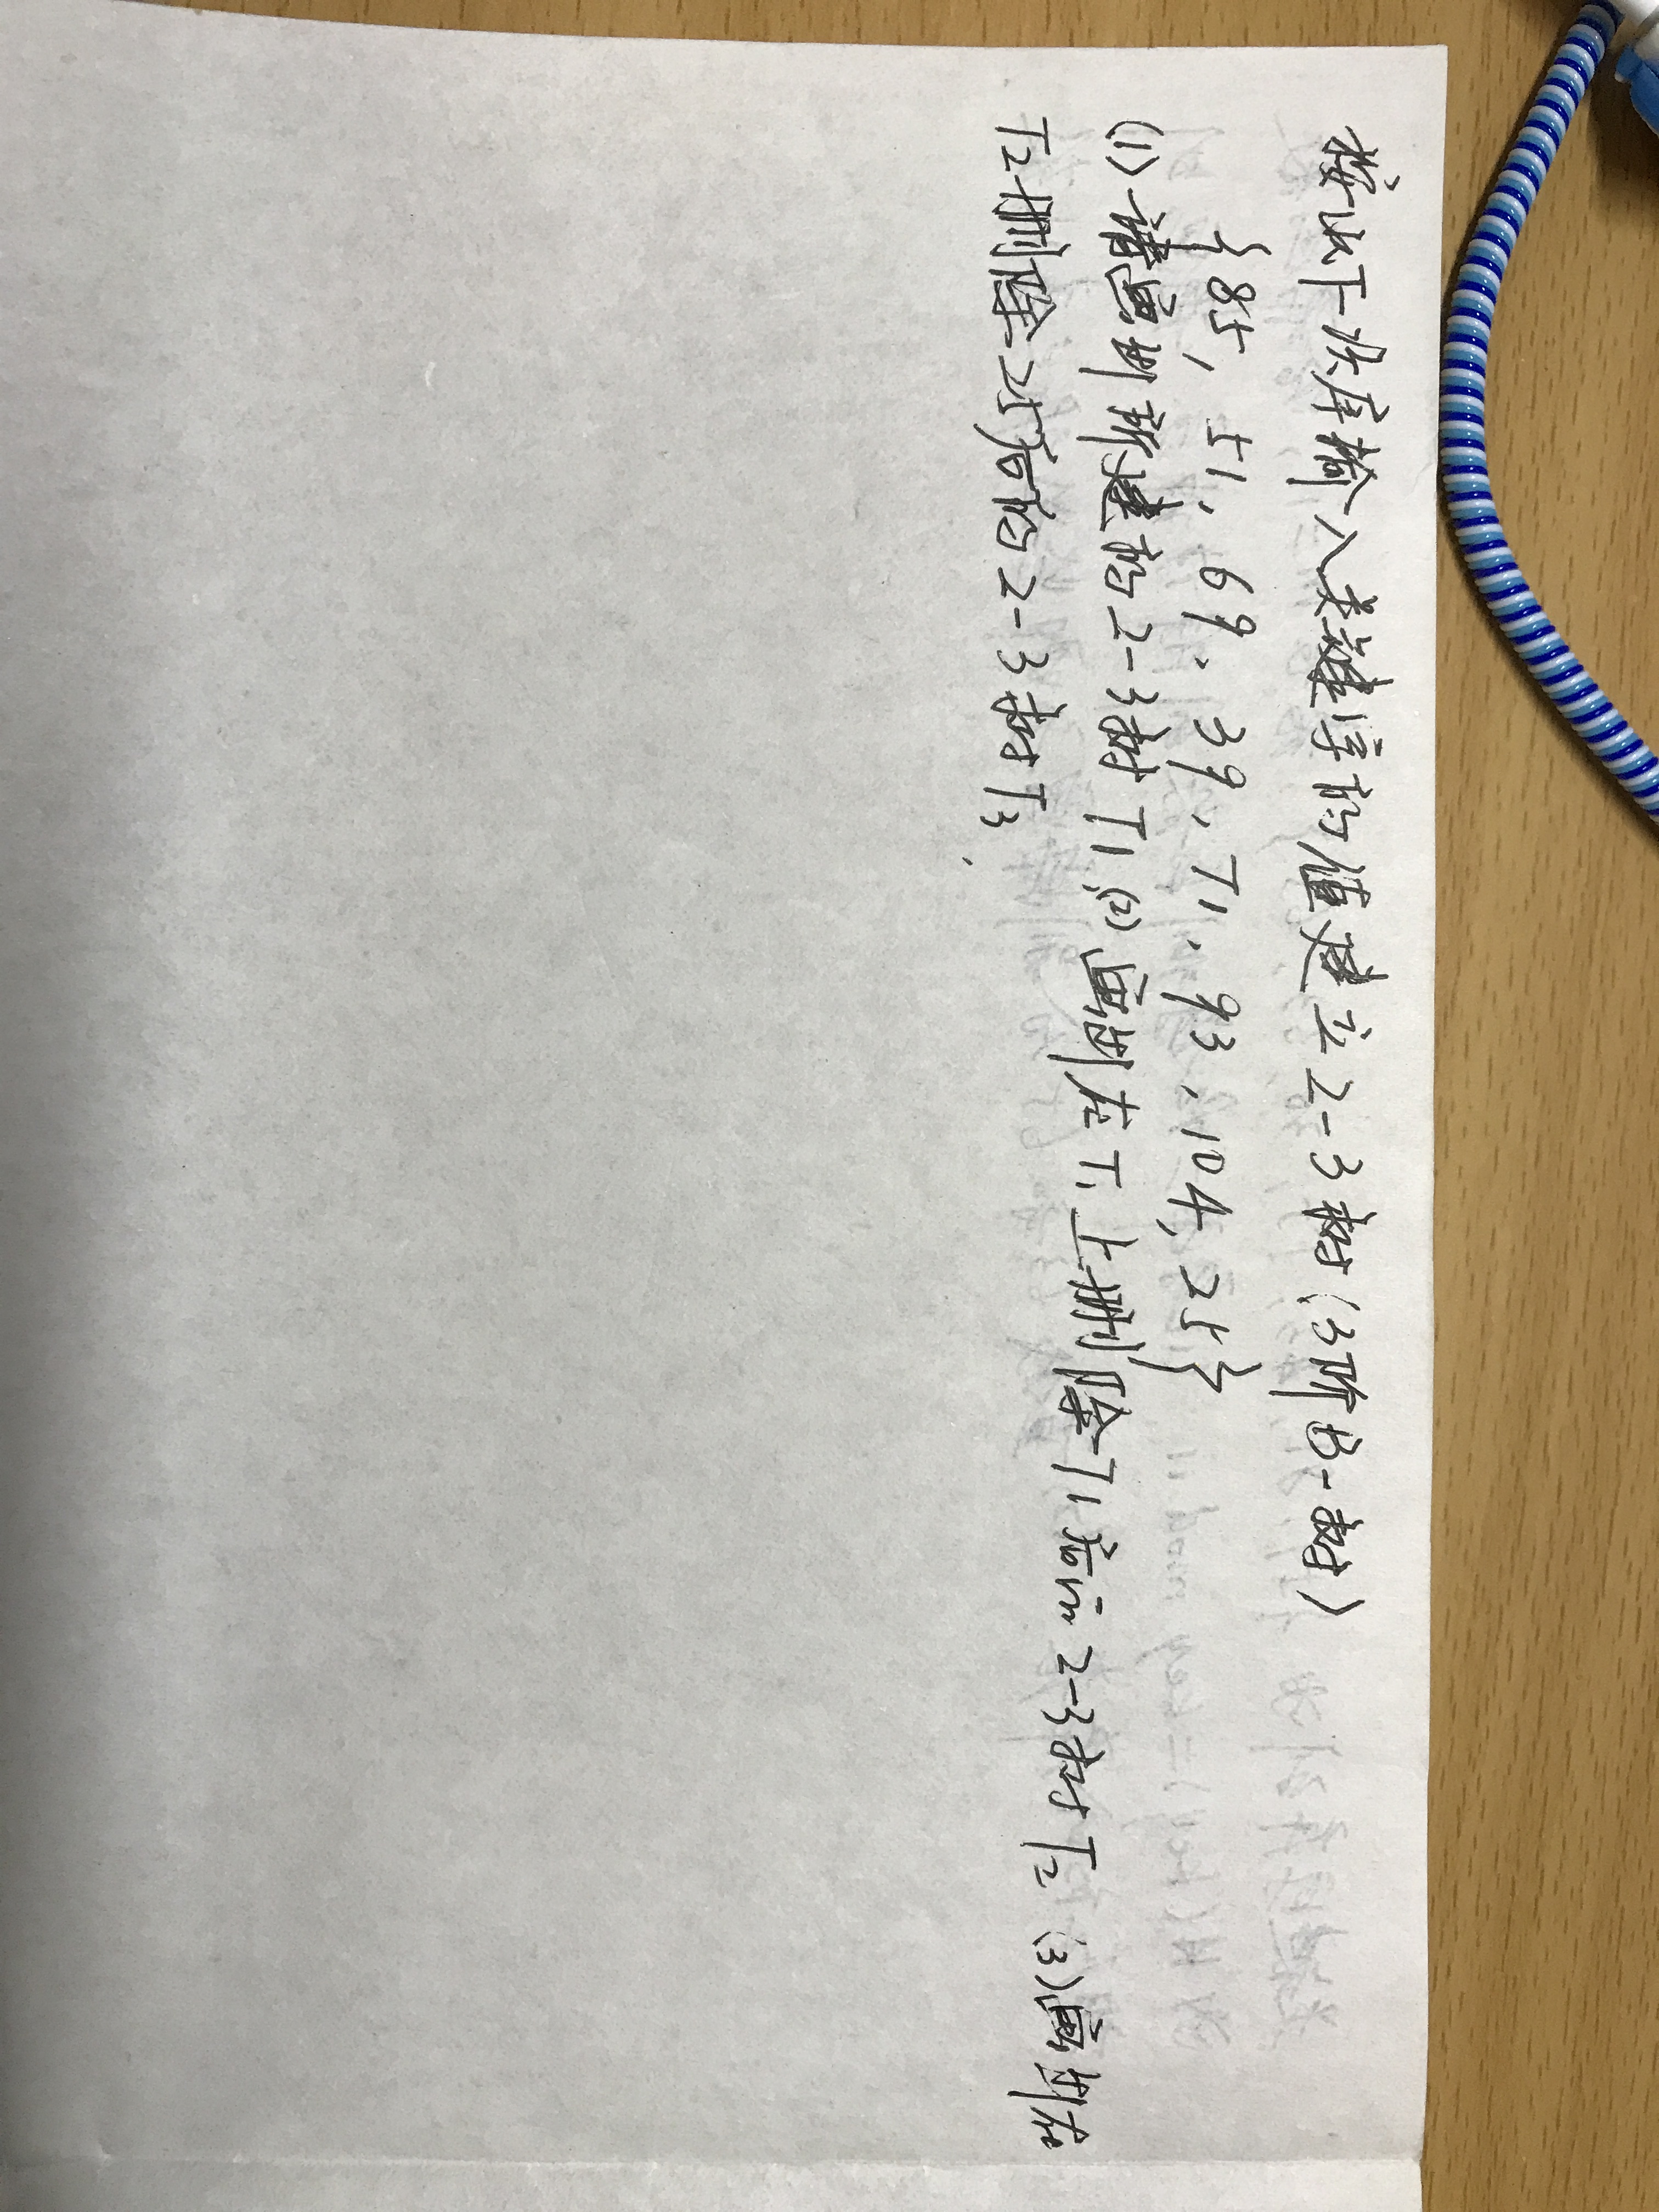 按以下次序输入关键字的值建立2-3树(3阶B-树)
{85, 51, 69, 39, 71, 93, 104, 25}
(1) 请画出所建的2-3树T1 (2) 画出在T1上删除71后的2-3树T2 (3)画出在
T2删除25后的2-3树T3.